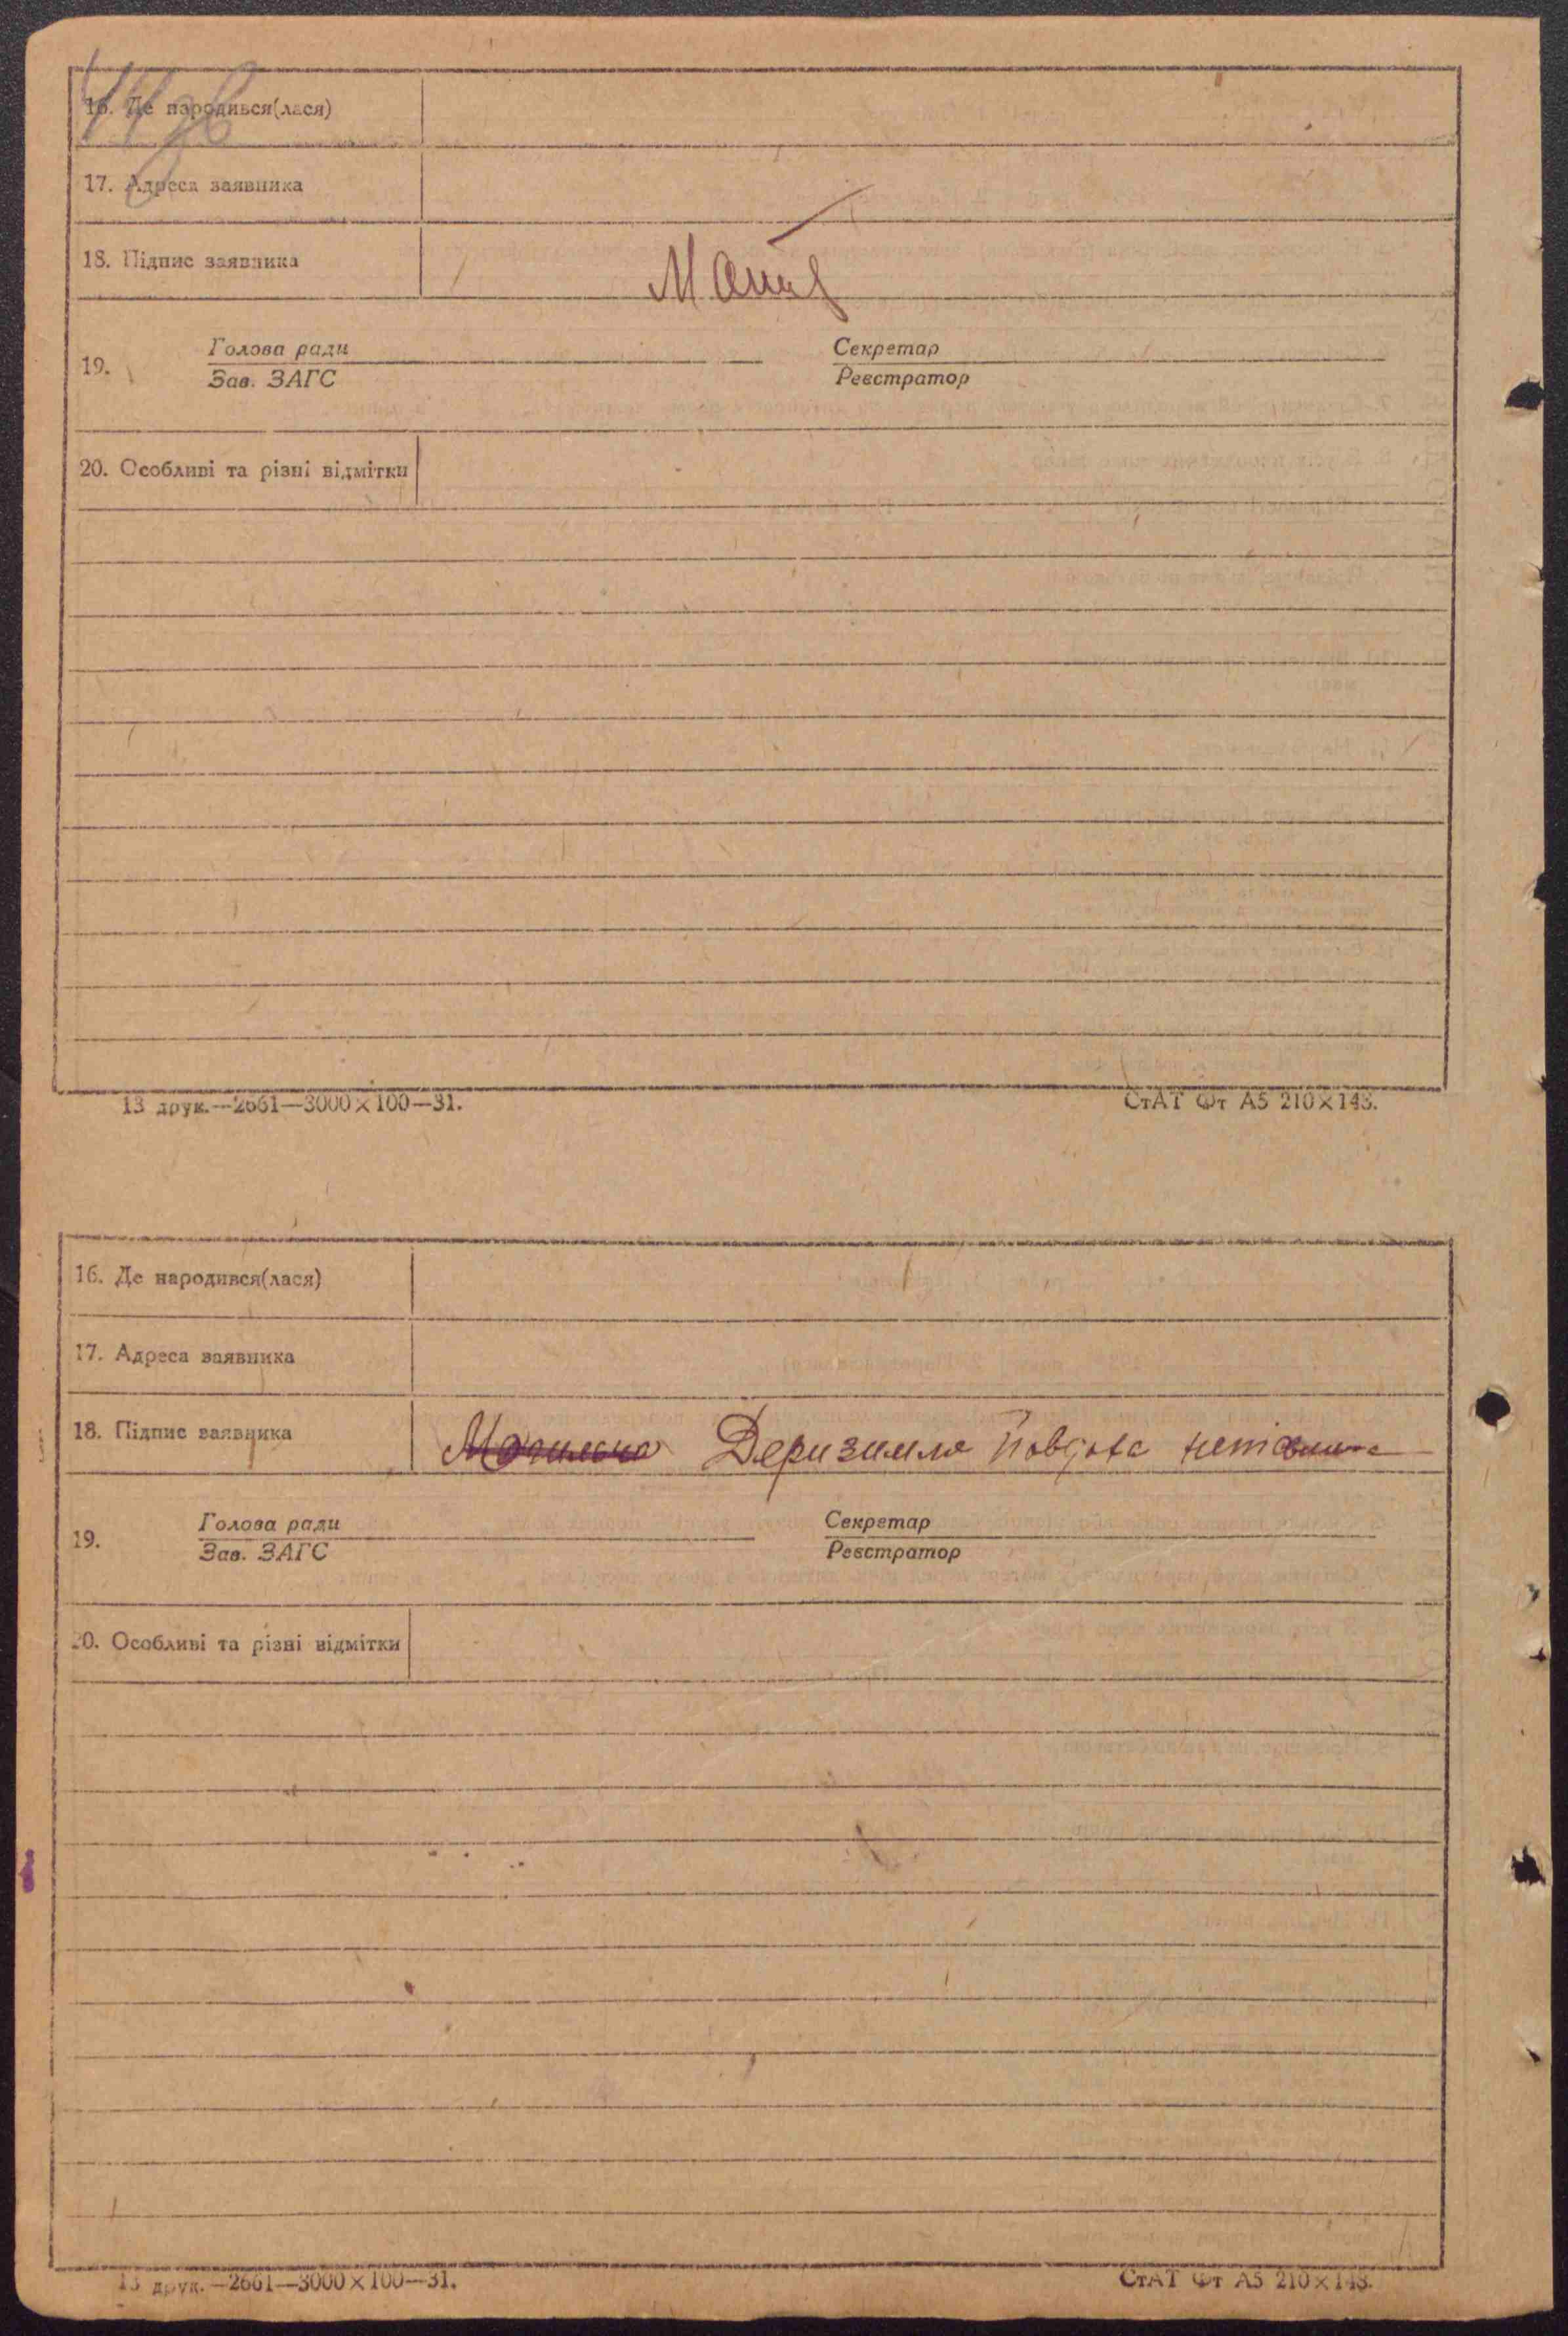 16. Де народився(лася)
17. Адреса заявника
18. Підпис заявника
19. Голова ради Секретар
Зав. ЗАГС Реєстратор
20. Особливі та різні відмітки
13 друк.—2661—3000×100—31. СтАТ Фт А5 210×143.
16. Де народився(лася)
17. Адреса заявника
18. Підпис заявника Деризимля
19. Голова ради Секретар
Зав. ЗАГС Реєстратор
20. Особливі та різні відмітки
13 друк.—2661—3000×100—31. СтАТ Фт А5 210×143.